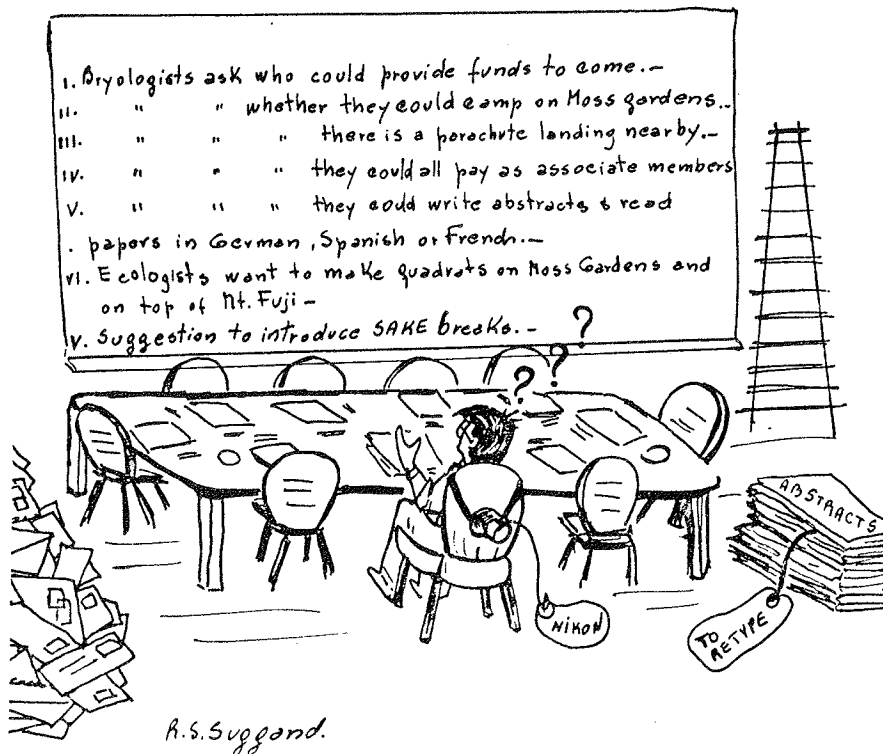 I. Bryologists ask who could provide funds to come.-
II. " " whether they could camp on Moss gardens..
III. " " " there is a parachute landing nearby.-
IV. " " " they could all pay as associate members
V. " " " they could write abstracts & read
. papers in German, Spanish or French.-
VI. Ecologists want to make quadrats on Moss Gardens and
on top of Mt. Fuji -
V. Suggestion to introduce SAKE breaks.-
? ? ?
ABSTRACTS
NIKON
TO
RETYPE
R.S. Suggand.